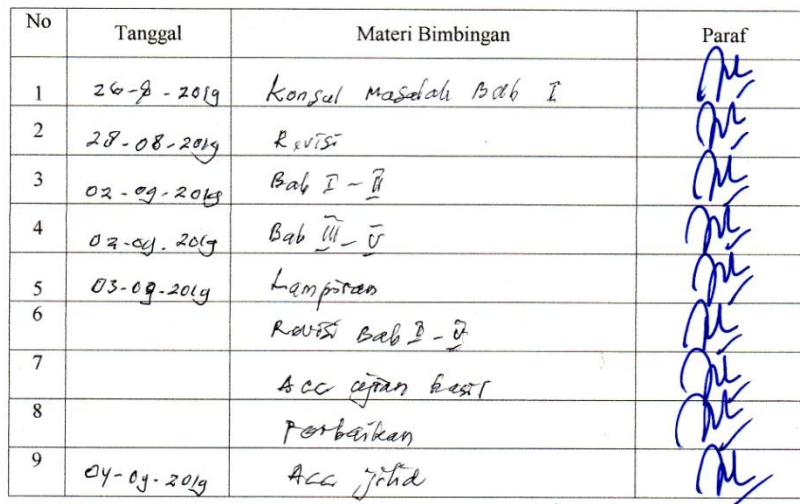 No Tanggal Materi Bimbingan Paraf
1 26-8-2019 Konsul Masalah Bab I
2 28-08-2019 Revisi
3 02-09-2019 Bab I - II
4 02-09.2019 Bab III - V
5 03-09-2019 Lampiran
6 Revisi Bab I - V
7 Acc ujian hasil
8 Perbaikan
9 04-09-2019 Acc jilid